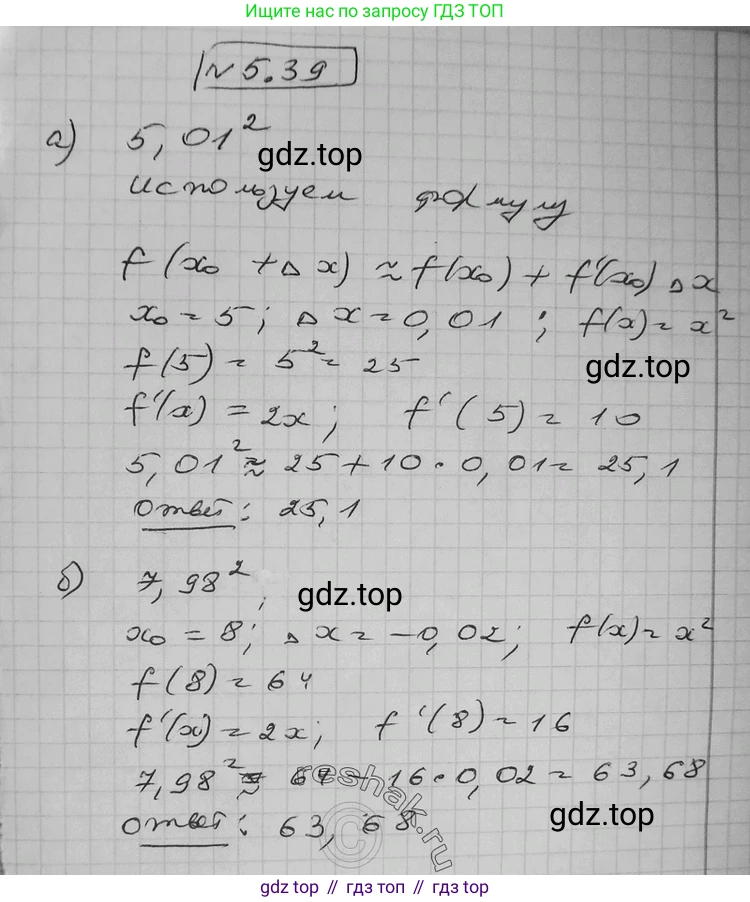 Ищите нас по запросу ГДЗ ТОП
№5.39
а) 5,01²
gdz.top
используем формулу
f(x₀ + Δx) ≈ f(x₀) + f'(x₀) Δx
x₀ = 5; Δx = 0,01 ; f(x) = x²
f(5) = 5² = 25
gdz.top
f'(x) = 2x; f'(5) = 10
5,01² ≈ 25 + 10 · 0,01 = 25,1
Ответ: 25,1
б) 7,98²;
gdz.top
x₀ = 8; Δx = -0,02; f(x) = x²
f(8) = 64
f'(x) = 2x; f'(8) = 16
7,98² ≈ 64 - 16 · 0,02 = 63,68
reshak.ru
Ответ: 63,68
gdz.top
gdz top // гдз топ // gdz top